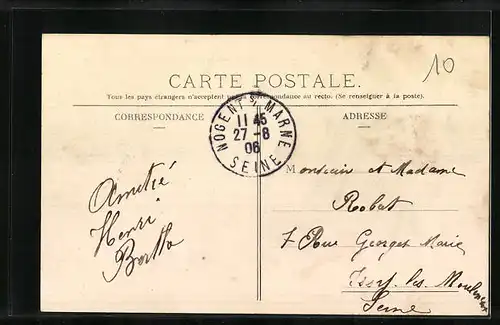 10
CARTE POSTALE.
Tous les pays étrangers n'acceptent pas la correspondance au recto. (Se renseigner à la poste).
CORRESPONDANCE
ADRESSE
NOGENT S/ MARNE
11 45
27 - 8
06
SEINE
Amitié
Henri
Monsieur et Madame
Robat
7 Rue Georges Marie
Issy les Moulineaux
Seine